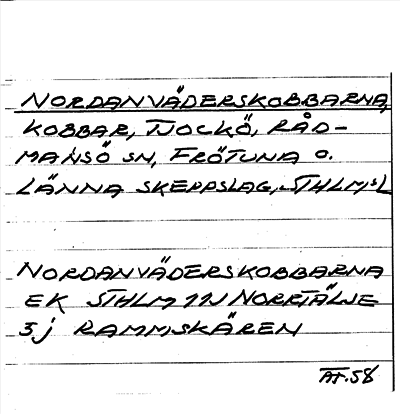 NORDANVÄDERSKOBBARNA,
KOBBAR, TJOCKÖ, RÅD-
MANSÖ SN, FRÖTUNA O.
LÄNNA SKEPPSLAG, STHLMS L
NORDANVÄDERSKOBBARNA
EK STHLM 11N NORRTÄLJE
3j RAMMSKÄREN
AF.58